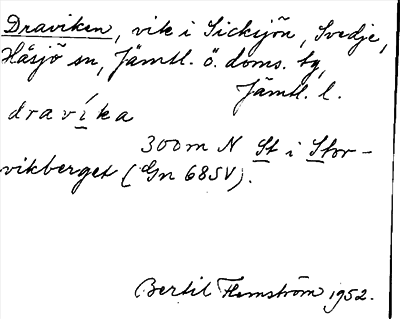 Draviken, vik i Sicksjön, Svedje,
Håsjö sn, Jämtl. ö. doms. tg,
Jämtl. l.
dravíka
300 m N St i Stor-
vikberget (Gn 68SV).
Bertil Flemström 1952.